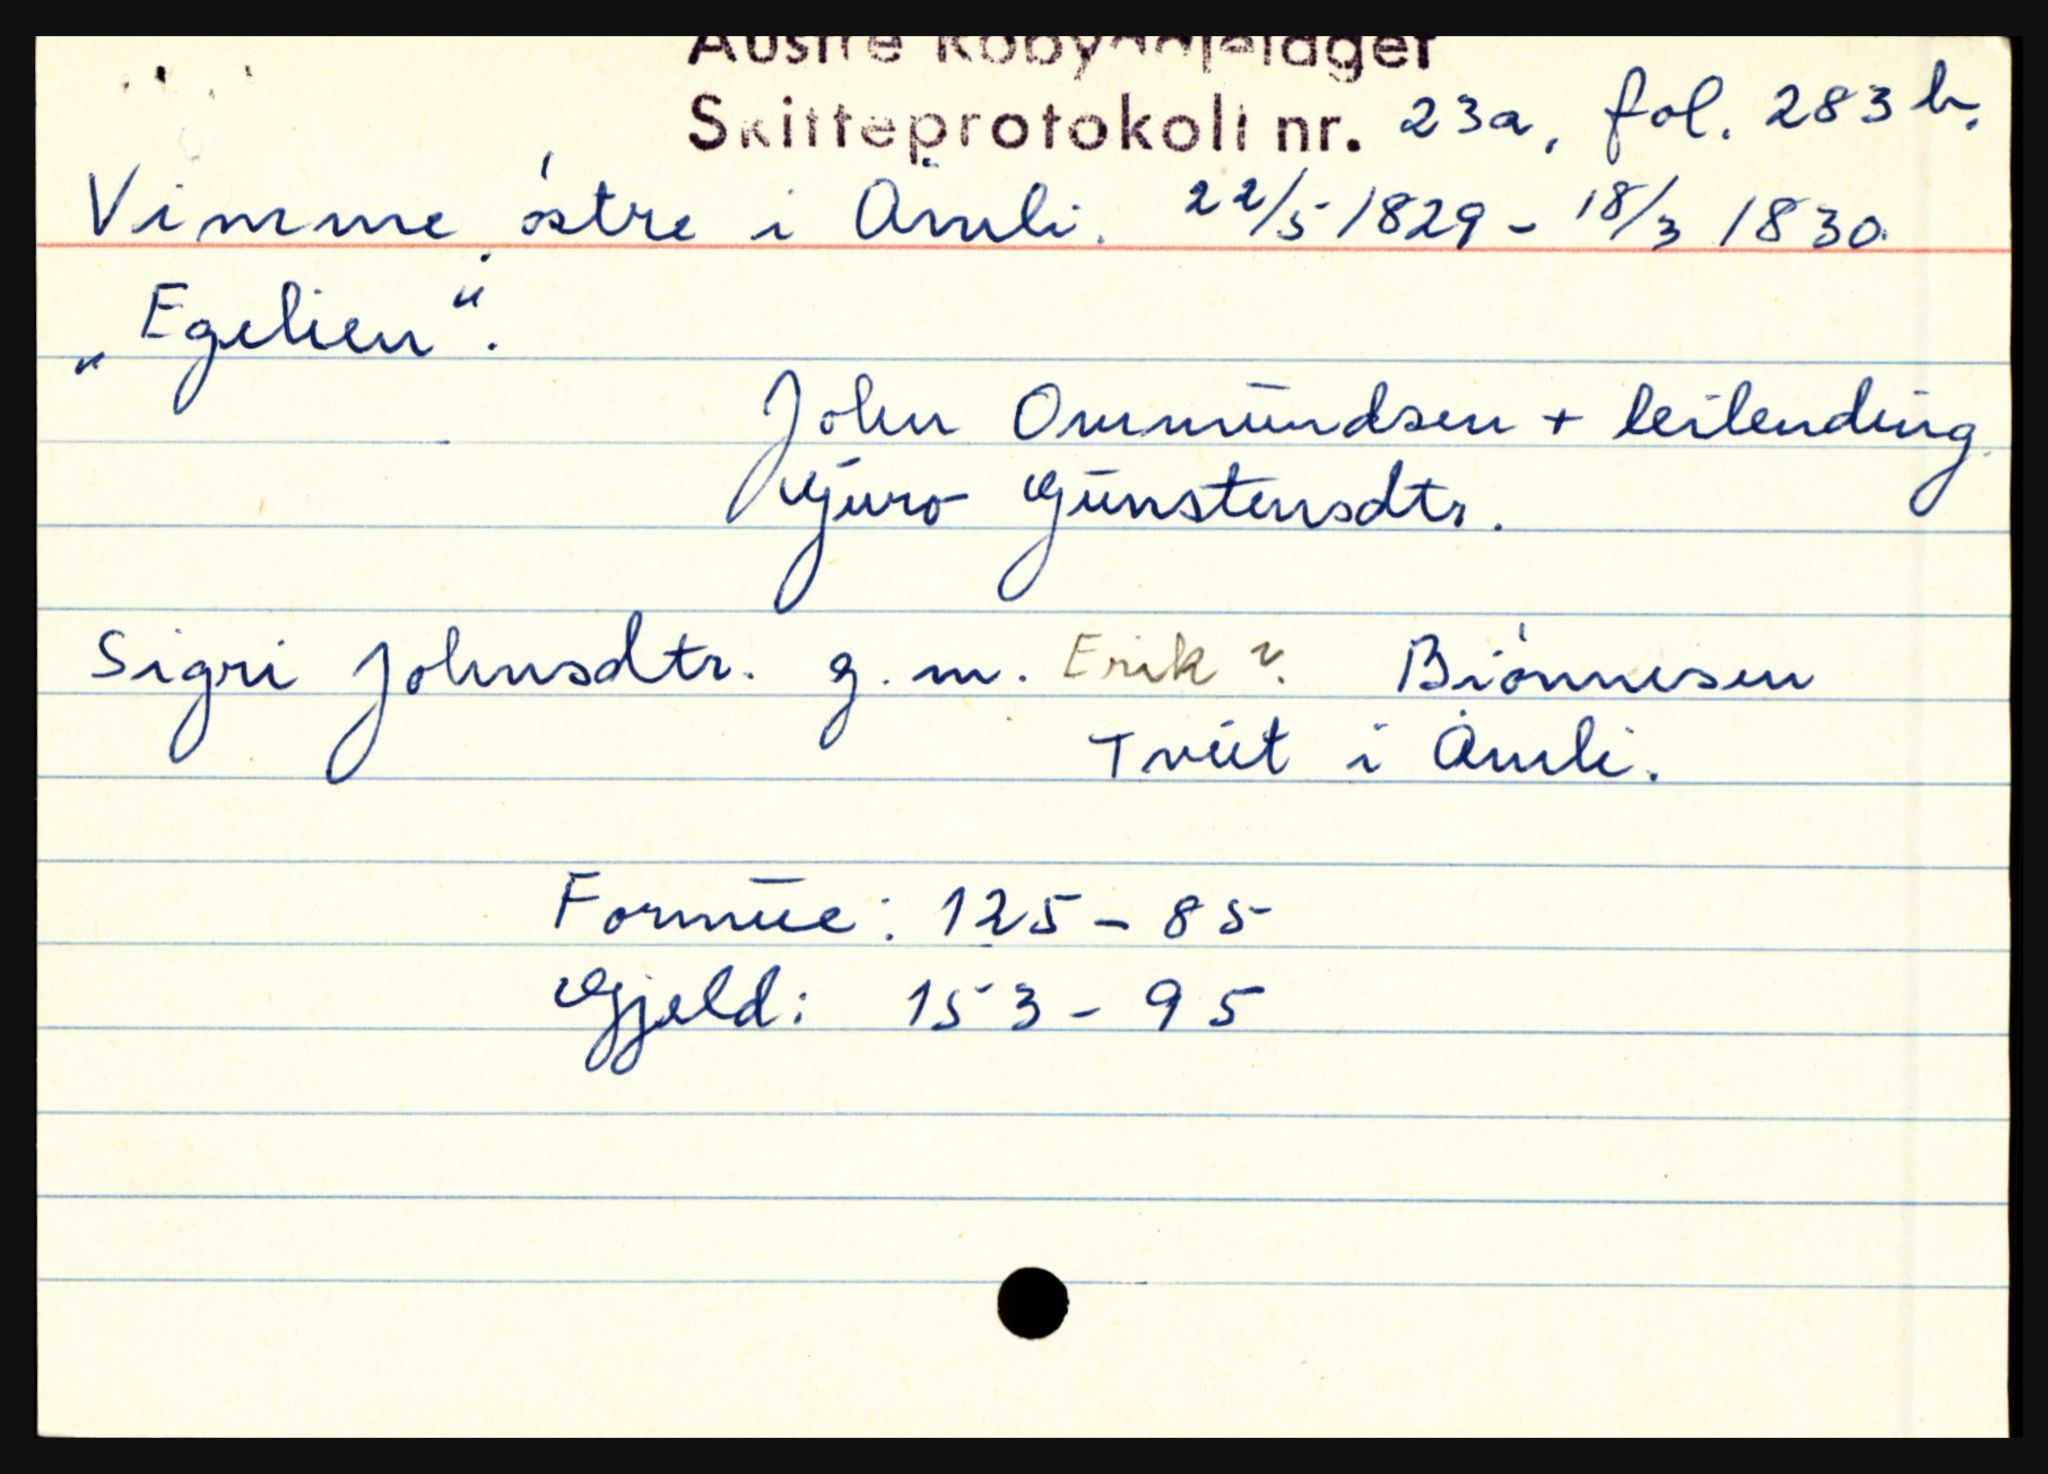 Austre Robyggjelaget
Skifteprotokoll nr. 23a, fol. 283 b.
Vimme, østre i Åmli. 22/5 1829 - 18/3 1830.
„Egelien“.
John Ommundsen + leilending.
Guro Gunstensdtr.
Sigri Johnsdtr. g. m. Erik ?. Biønnesen
Tveit i Åmli.
Formue: 125 - 85
Gjeld: 153 - 95